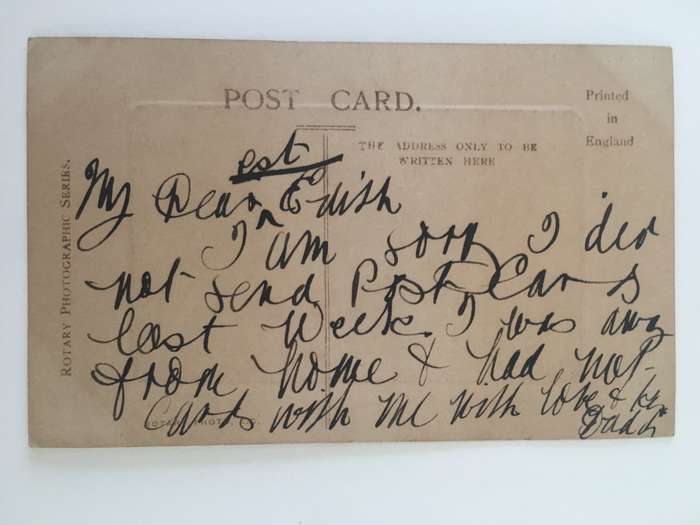 POST CARD.
Printed
in
England
THE ADDRESS ONLY TO BE
WRITTEN HERE
ROTARY PHOTOGRAPHIC SERIES.
est
My Dear ^ Edith
I am sorry I did
not send Post Cards
last week I was away
from home & had not
Cards with me with love &
Daddy